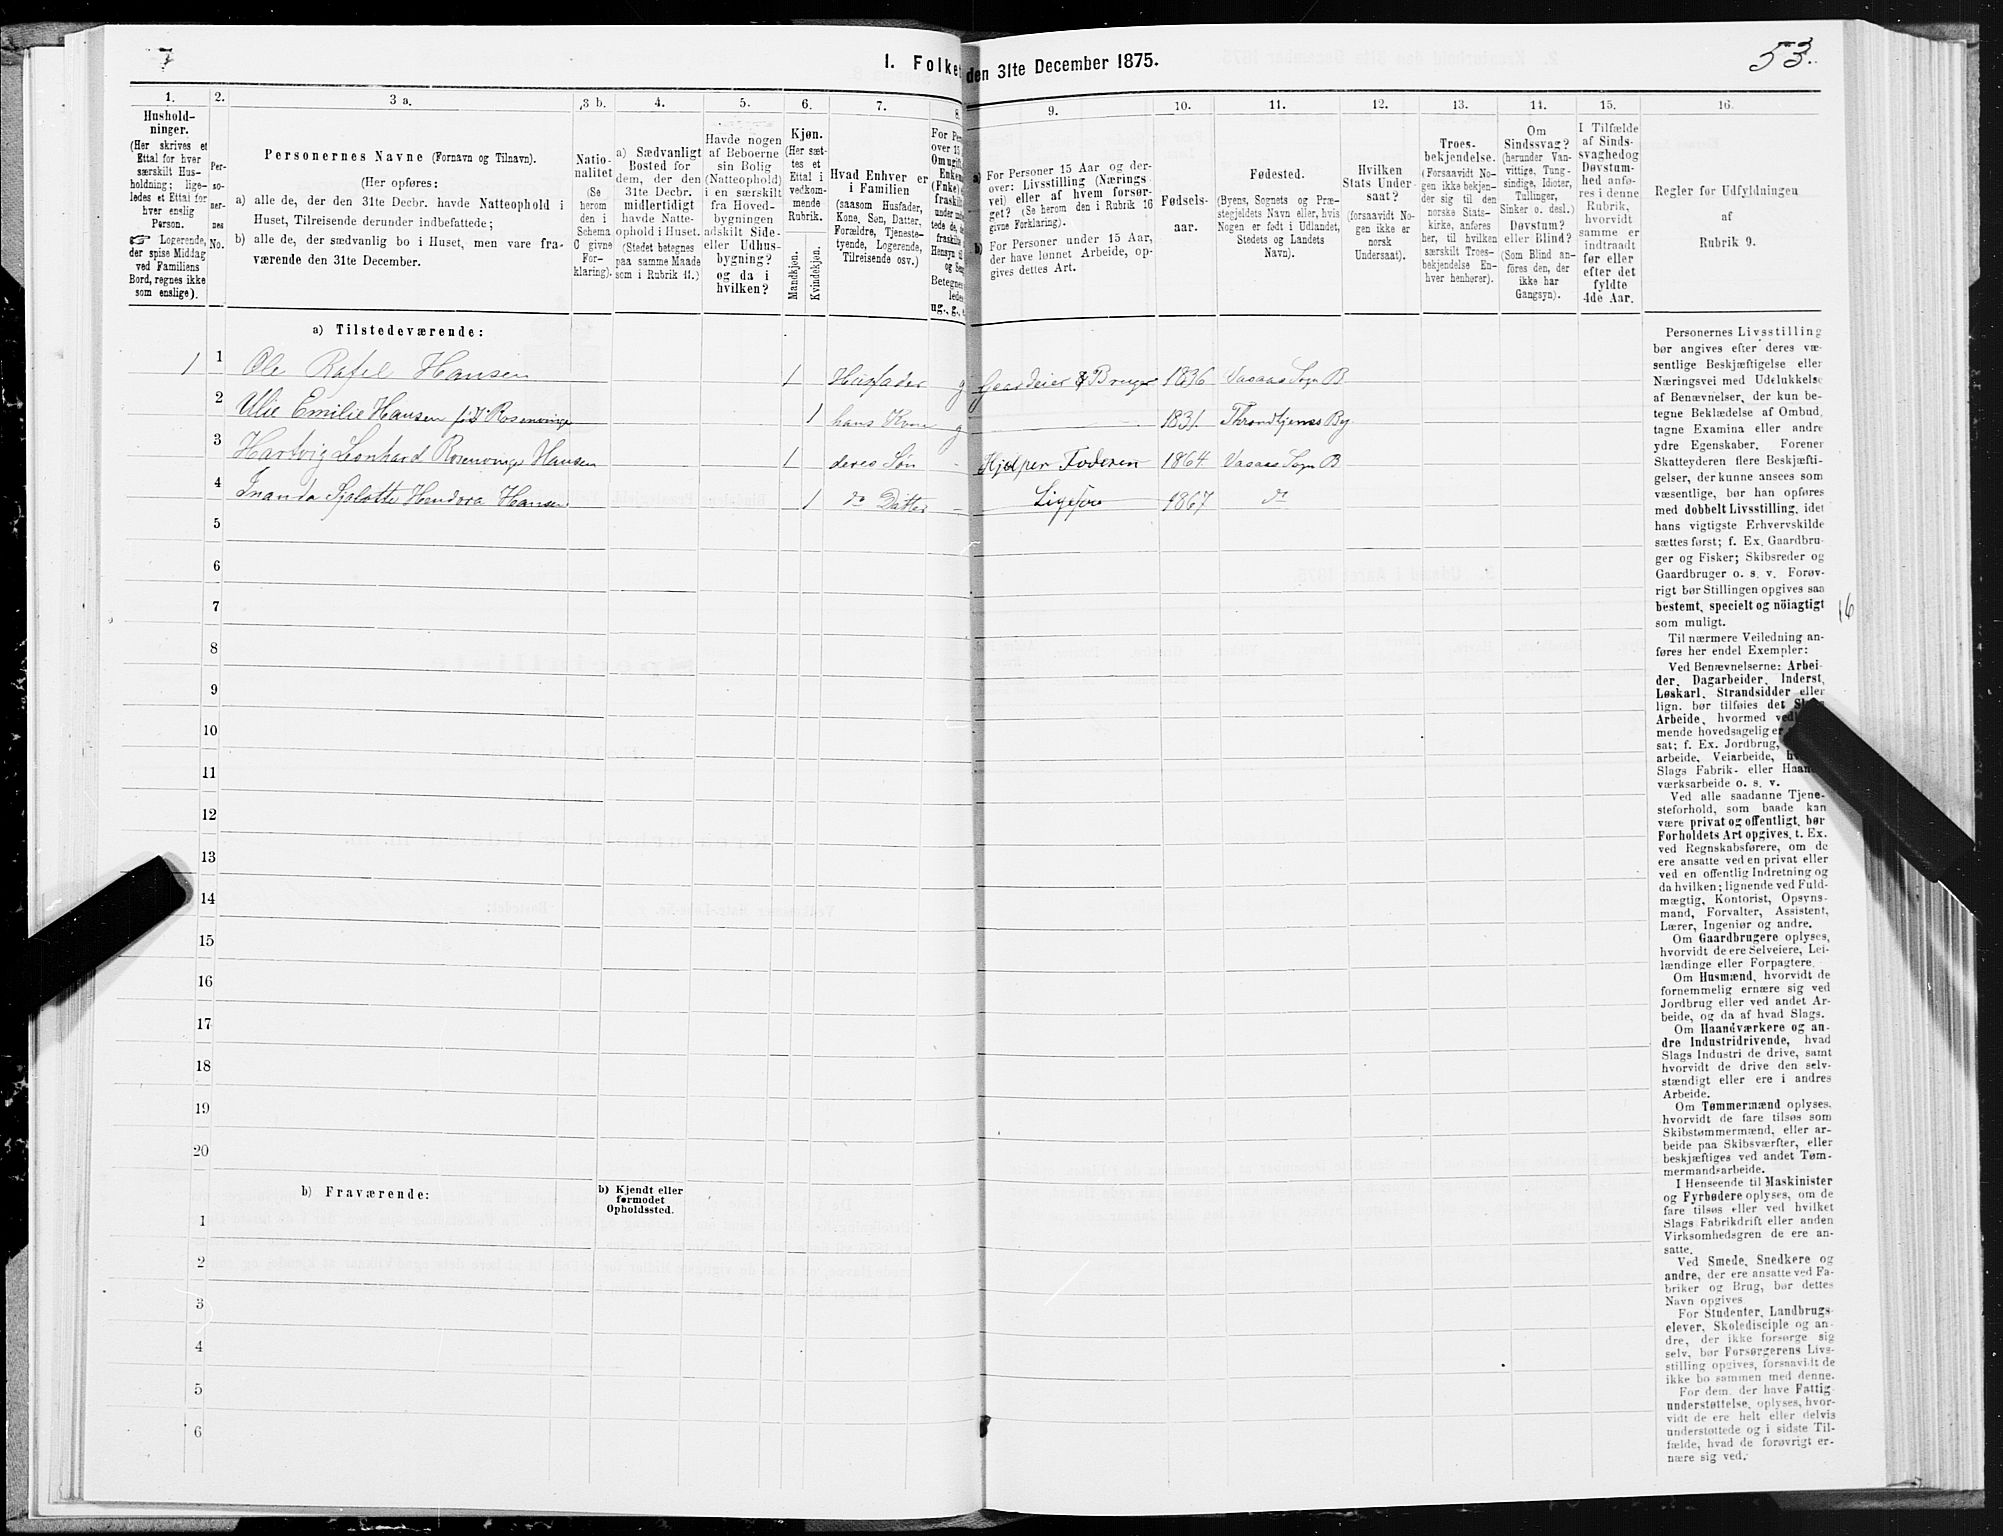 7
1. Folket
den 31te December 1875.
53.
1.
2.
3 a.
3 b.
4.
5.
6.
7.
8.
9.
10.
11.
12.
13.
14.
15.
16.
Hushold-
ninger.
(Her skrives et
Ettal for hver
særskilt Hus-
holdning; lige-
ledes et Ettal for
hver enslig
Person.
☞ Logerende,
der spise Middag
ved Familiens
Bord, regnes ikke
som enslige).
Per-
so-
ner-
nes
No.
Personernes Navne (Fornavn og Tilnavn).
(Her opføres:
a) alle de, der den 31te Decbr. havde Natteophold i
Huset, Tilreisende derunder indbefattede;
b) alle de, der sædvanlig bo i Huset, men vare fra-
værende den 31te December.
Natio-
nalitet
(Se
herom
den i
Schema
C givne
For-
klaring).
a) Sædvanligt
Bosted for
dem, der den
31te Decbr.
midlertidigt
havde Natte-
ophold i Huset.
(Stedet betegnes
paa samme Maade
som i Rubrik 11.)
Havde nogen
af Beboerne
sin Bolig
(Natteophold)
i en særskilt
fra Hoved-
bygningen
adskilt Side-
eller Udhus-
bygning?
og da i
hvilken?
Kjøn.
(Her sæt-
tes et
Ettal i
vedkom-
mende
Rubrik.
Mandkjøn.
Kvindekjøn.
Hvad Enhver er
i Familien
(saasom Husfader,
Kone, Søn, Datter,
Forældre, Tjeneste-
tyende, Logerende,
Tilreisende osv.)
For Per
over 15
Om ugift,
Enken
(Fnke)
fraskilt
under
tede de,
fraskilte
Hensyn til
og Sen
Betegnes
ledes
ug., g., e
a) For Personer 15 Aar og der-
over: Livsstilling (Nærings-
vei) eller af hvem forsør-
get? (Se herom den i Rubrik 16
givne Forklaring).
b) For Personer under 15 Aar,
der have lønnet Arbeide, op-
gives dettes Art.
Fødsels-
aar.
Fødested.
(Byens, Sognets og Præ-
stegjeldets Navn eller, hvis
Nogen er født i Udlandet,
Stedets og Landets
Navn).
Hvilken
Stats Under-
saat?
(forsaavidt No-
gen ikke er
norsk
Undersaat).
Troes-
bekjendelse.
(Forsaavidt No-
gen ikke bekjen-
der sig til den
norske Stats-
kirke, anføres
her, til hvilken
særskilt Troes-
bekjendelse En-
hver henhører).
Om
Sindssvag?
(herunder Van-
vittige, Tung-
sindige, Idioter,
Tullinger,
Sinker o. desl.)
Døvstum?
eller Blind?
(Som Blind an-
føres den, der
ikke har
Gangsyn).
I Tilfælde
af Sinds-
svaghed og
Døvstum-
hed anfø-
res i denne
Rubrik,
hvorvidt
samme er
indtraadt
før eller
efter det
fyldte
4de Aar.
Regler for Udfyldningen
af
Rubrik 9.
a) Tilstedeværende:
1 1 Ole Rafel Hansen 1 Husfader g Gaardeier & Bruger 1836 Vasaas Sogn B
2 Ulie Emilie Hansen fød Rosenvinge 1 hans Kone g 1831. Throndhjems By
3 Hartvig Leonhard Rosenvinge Hansen 1 deres Søn - Hjelper Faderen 1864. Vasaas Sogn B
4 Inanda Sjalotte Hendora Hansen 1 do Datter - Ligesom 1867 do
5
6
7
8
9
10
11
12
13
14
15
16
17
18
19
20
b) Fraværende:
b) Kjendt eller
formodet
Opholdssted.
1
2
3
4
5
6
Personernes Livsstilling
bør angives efter deres væ-
sentlige Beskjæftigelse eller
Næringsvei med Udelukkelse
af Benævnelser, der kun be-
tegne Beklædelse af Ombud,
tagne Examina eller andre
ydre Egenskaber. Forener
Skatteyderen flere Beskjæfti-
gelser, der kunne ansees som
væsentlige, bør han opføres
med dobbelt Livsstilling, idet
hans vigtigste Erhvervskilde
sættes først; f. Ex. Gaardbru-
ger og Fisker; Skibsreder og
Gaardbruger o. s. v. Forøv-
rigt bør Stillingen opgives saa
bestemt, specielt og nöiagtigt
som muligt.
16
Til nærmere Veiledning an-
føres her endel Exempler:
Ved Benævnelserne: Arbei-
der, Dagarbeider, Inderst,
Løskarl, Strandsidder eller
lign. bør tilføies det Slags
Arbeide, hvormed ved
mende hovedsagelig er
sat; f. Ex. Jordbrug,
arbeide, Veiarbeide, h
Slags Fabrik- eller Haand
værksarbeide o. s. v.
Ved alle saadanne Tjene-
steforhold, som baade kan
være privat og offentligt, bør
Forholdets Art opgives, t. Ex.
ved Regnskabsførere, om de
ere ansatte ved en privat eller
ved en offentlig Indretning og
da hvilken; lignende ved Fuld-
mægtig, Kontorist, Opsyns-
mand, Forvalter, Assistent,
Lærer, Ingeniør og andre.
Om Gaardbrugere oplyses,
hvorvidt de ere Selveiere, Lei-
lændinge eller Forpagtere.
Om Husmænd, hvorvidt de
fornemmelig ernære sig ved
Jordbrug eller ved andet Ar-
beide, og da af hvad Slags.
Om Haandværkere og an-
dre Industridrivende, hvad
Slags Industri de drive, samt
hvorvidt de drive den selv-
stændigt eller ere i andres
Arbeide.
Om Tømmermænd oplyses,
hvorvidt de fare tilsøs som
Skibstømmermænd, eller ar-
beide paa Skibsværfter, eller
beskjæftiges ved andet Tøm-
mermandsarbeide.
I Henseende til Maskinister
og Fyrbødere oplyses, om de
fare tilsøs eller ved hvilket
Slags Fabrikdrift eller anden
Virksomhedsgren de ere an-
satte.
Ved Smede, Snedkere og
andre, der ere ansatte ved Fa-
briker og Brug, bør dettes
Navn opgives
For Studenter, Landbrugs-
elever, Skoledisciple og an-
dre, der ikke forsørge sig
selv, bør Forsørgerens Livs-
stilling opgives, forsaavidt de
ikke bo sammen med denne.
For dem, der have Fattig-
understøttelse, oplyses, hvor-
vidt de ere helt eller delvis
understøttede og i sidste Til-
fælde, hvad de forøvrigt er-
nære sig ved.